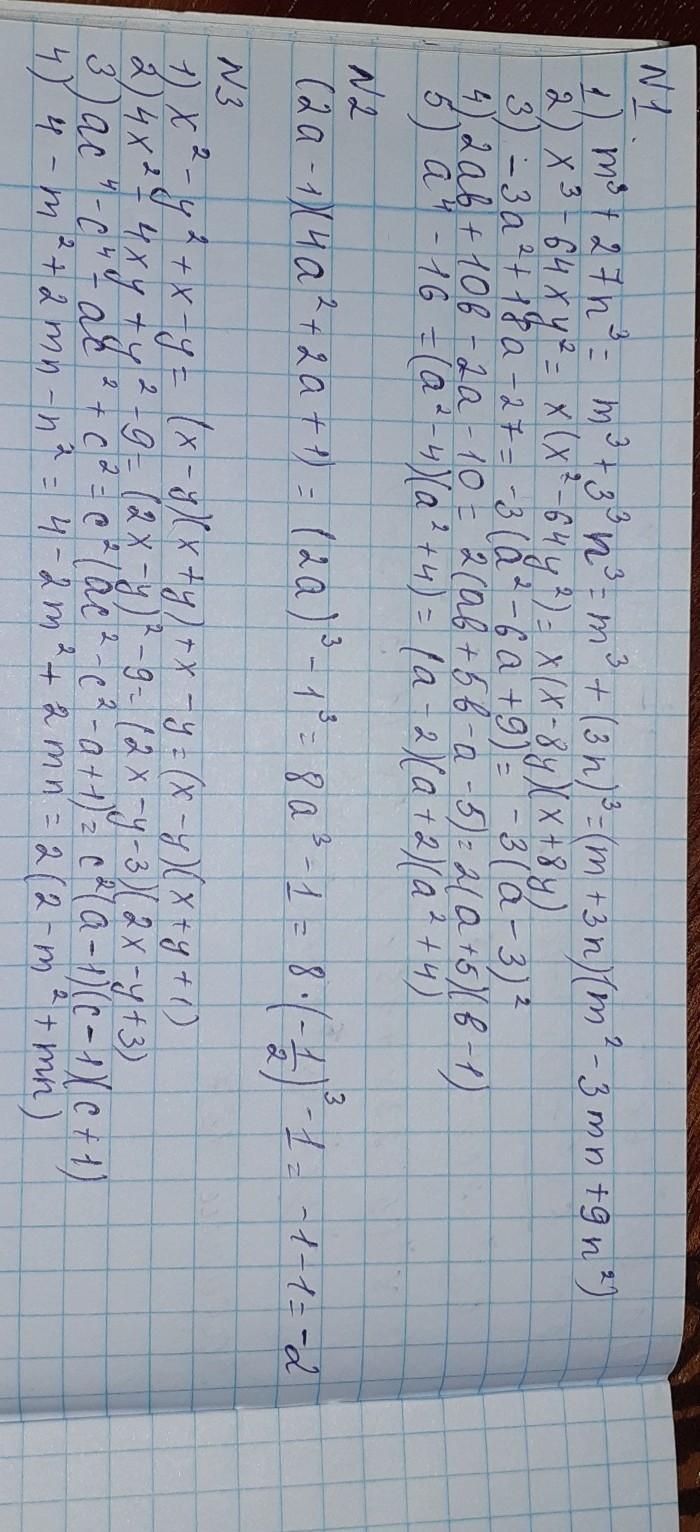 N1.
1) m³ + 27n³ = m³ + 3³n³ = m³ + (3n)³ = (m + 3n)(m² - 3mn + 9n²)
2) x³ - 64xy² = x(x² - 64y²) = x(x - 8y)(x + 8y)
3) -3a² + 18a - 27 = -3(a² - 6a + 9) = -3(a - 3)²
4) 2ab + 10b - 2a - 10 = 2(ab + 5b - a - 5) = 2(a + 5)(b - 1)
5) a⁴ - 16 = (a² - 4)(a² + 4) = (a - 2)(a + 2)(a² + 4)
N2
(2a - 1)(4a² + 2a + 1) = (2a)³ - 1³ = 8a³ - 1 = 8 · (-1/2)³ - 1 = -1 - 1 = -2
N3
1) x² - y² + x - y = (x - y)(x + y) + x - y = (x - y)(x + y + 1)
2) 4x² - 4xy + y² - 9 = (2x - y)² - 9 = (2x - y - 3)(2x - y + 3)
3) ac⁴ - c⁴ - ac² + c² = c²(ac² - c² - a + 1) = c²(a - 1)(c - 1)(c + 1)
4) 4 - m² + 2mn - n² = 4 - 2m² + 2mn = 2(2 - m² + mn)